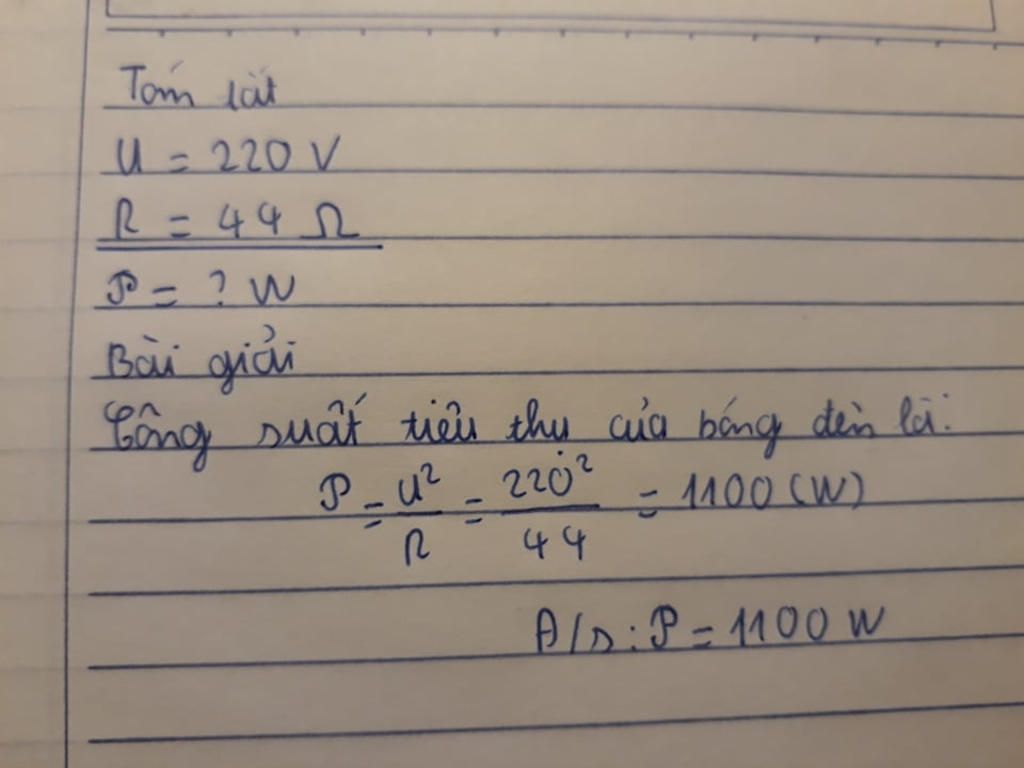 Tóm tắt
U = 220 V
R = 44 Ω
P = ? W
Bài giải
Công suất tiêu thụ của bóng đèn là:
P = U²/R = 220²/44 = 1100 (W)
Đ/s: P = 1100 W